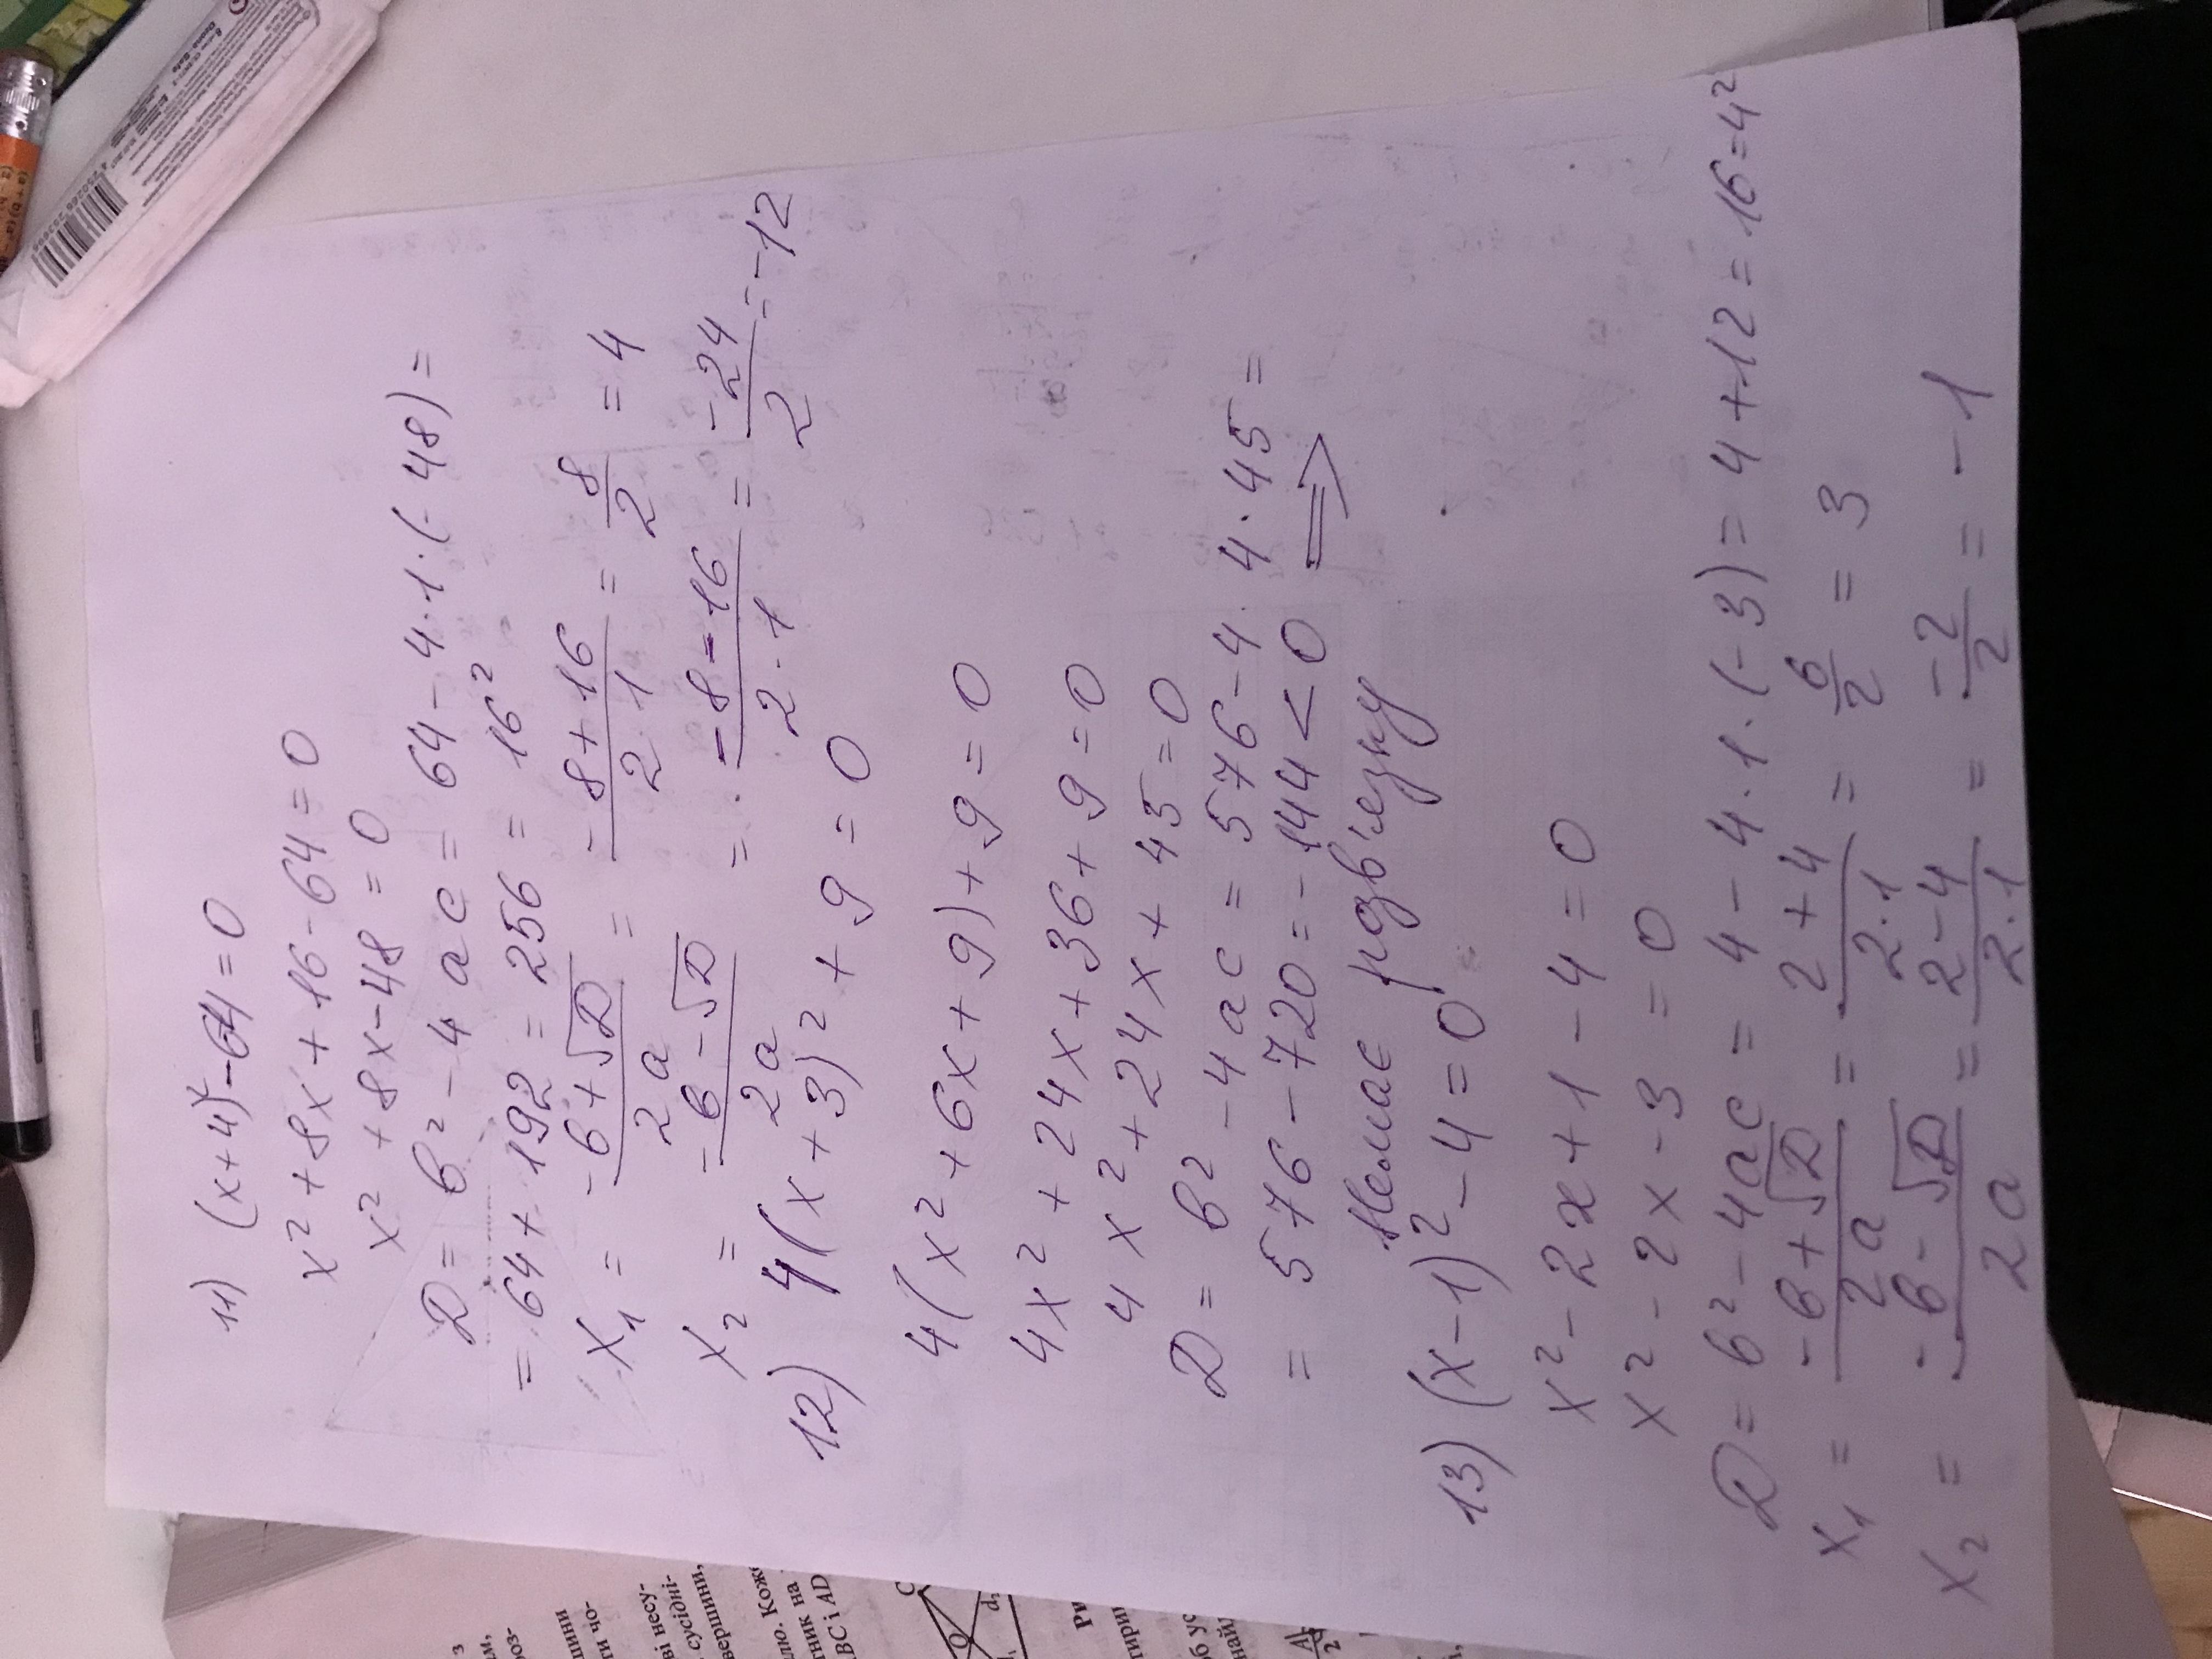 11) (x+4)²-64=0
x²+8x+16-64=0
x²+8x-48=0
D=b²-4ac=64-4·1·(-48)=
=64+192=256=16²
x₁=(-b+√D)/2a=(-8+16)/(2·1)=8/2=4
x₂=(-b-√D)/2a=(-8-16)/(2·1)=-24/2=-12
12) 4(x+3)²+9=0
4(x²+6x+9)+9=0
4x²+24x+36+9=0
4x²+24x+45=0
D=b²-4ac=576-4·4·45=
=576-720=-144<0 ⟹
Немає розв'язку
13) (x-1)²-4=0
x²-2x+1-4=0
x²-2x-3=0
D=b²-4ac=4-4·1·(-3)=4+12=16=4²
x₁=(-b+√D)/2a=(2+4)/(2·1)=6/2=3
x₂=(-b-√D)/2a=(2-4)/(2·1)=-2/2=-1